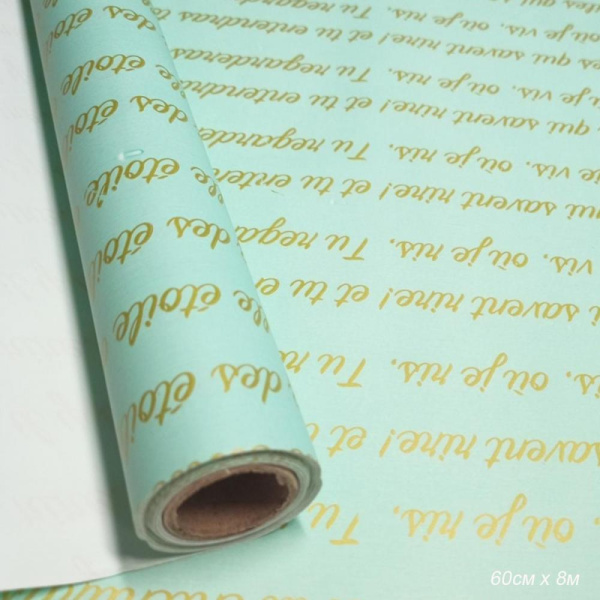 des étoile
étoile
des étoile
étoile,
des étoile
étoile,
des étoile
qui savent rire! et tu entendras
vis, où je ris. Tu regarderas
qui savent rire! et tu entendras
vis, où je ris. Tu regarde
qui savent rire! et tu enten
vis, où je ris. Tu regar
savent rire! et tu en
où je ris. Tu
savent rire! et
où je ris. Tu
60см х 8м